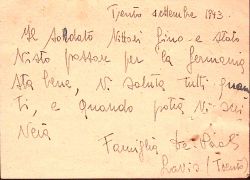 Trento settembre 1943.
Al Soldato Nittori Gino e stato
Visto passare per la Germania
sta bene, Vi saluta tutti quan
ti, e quando potrà Vi scri
Verà
Famiglia
Lavis (Trento)